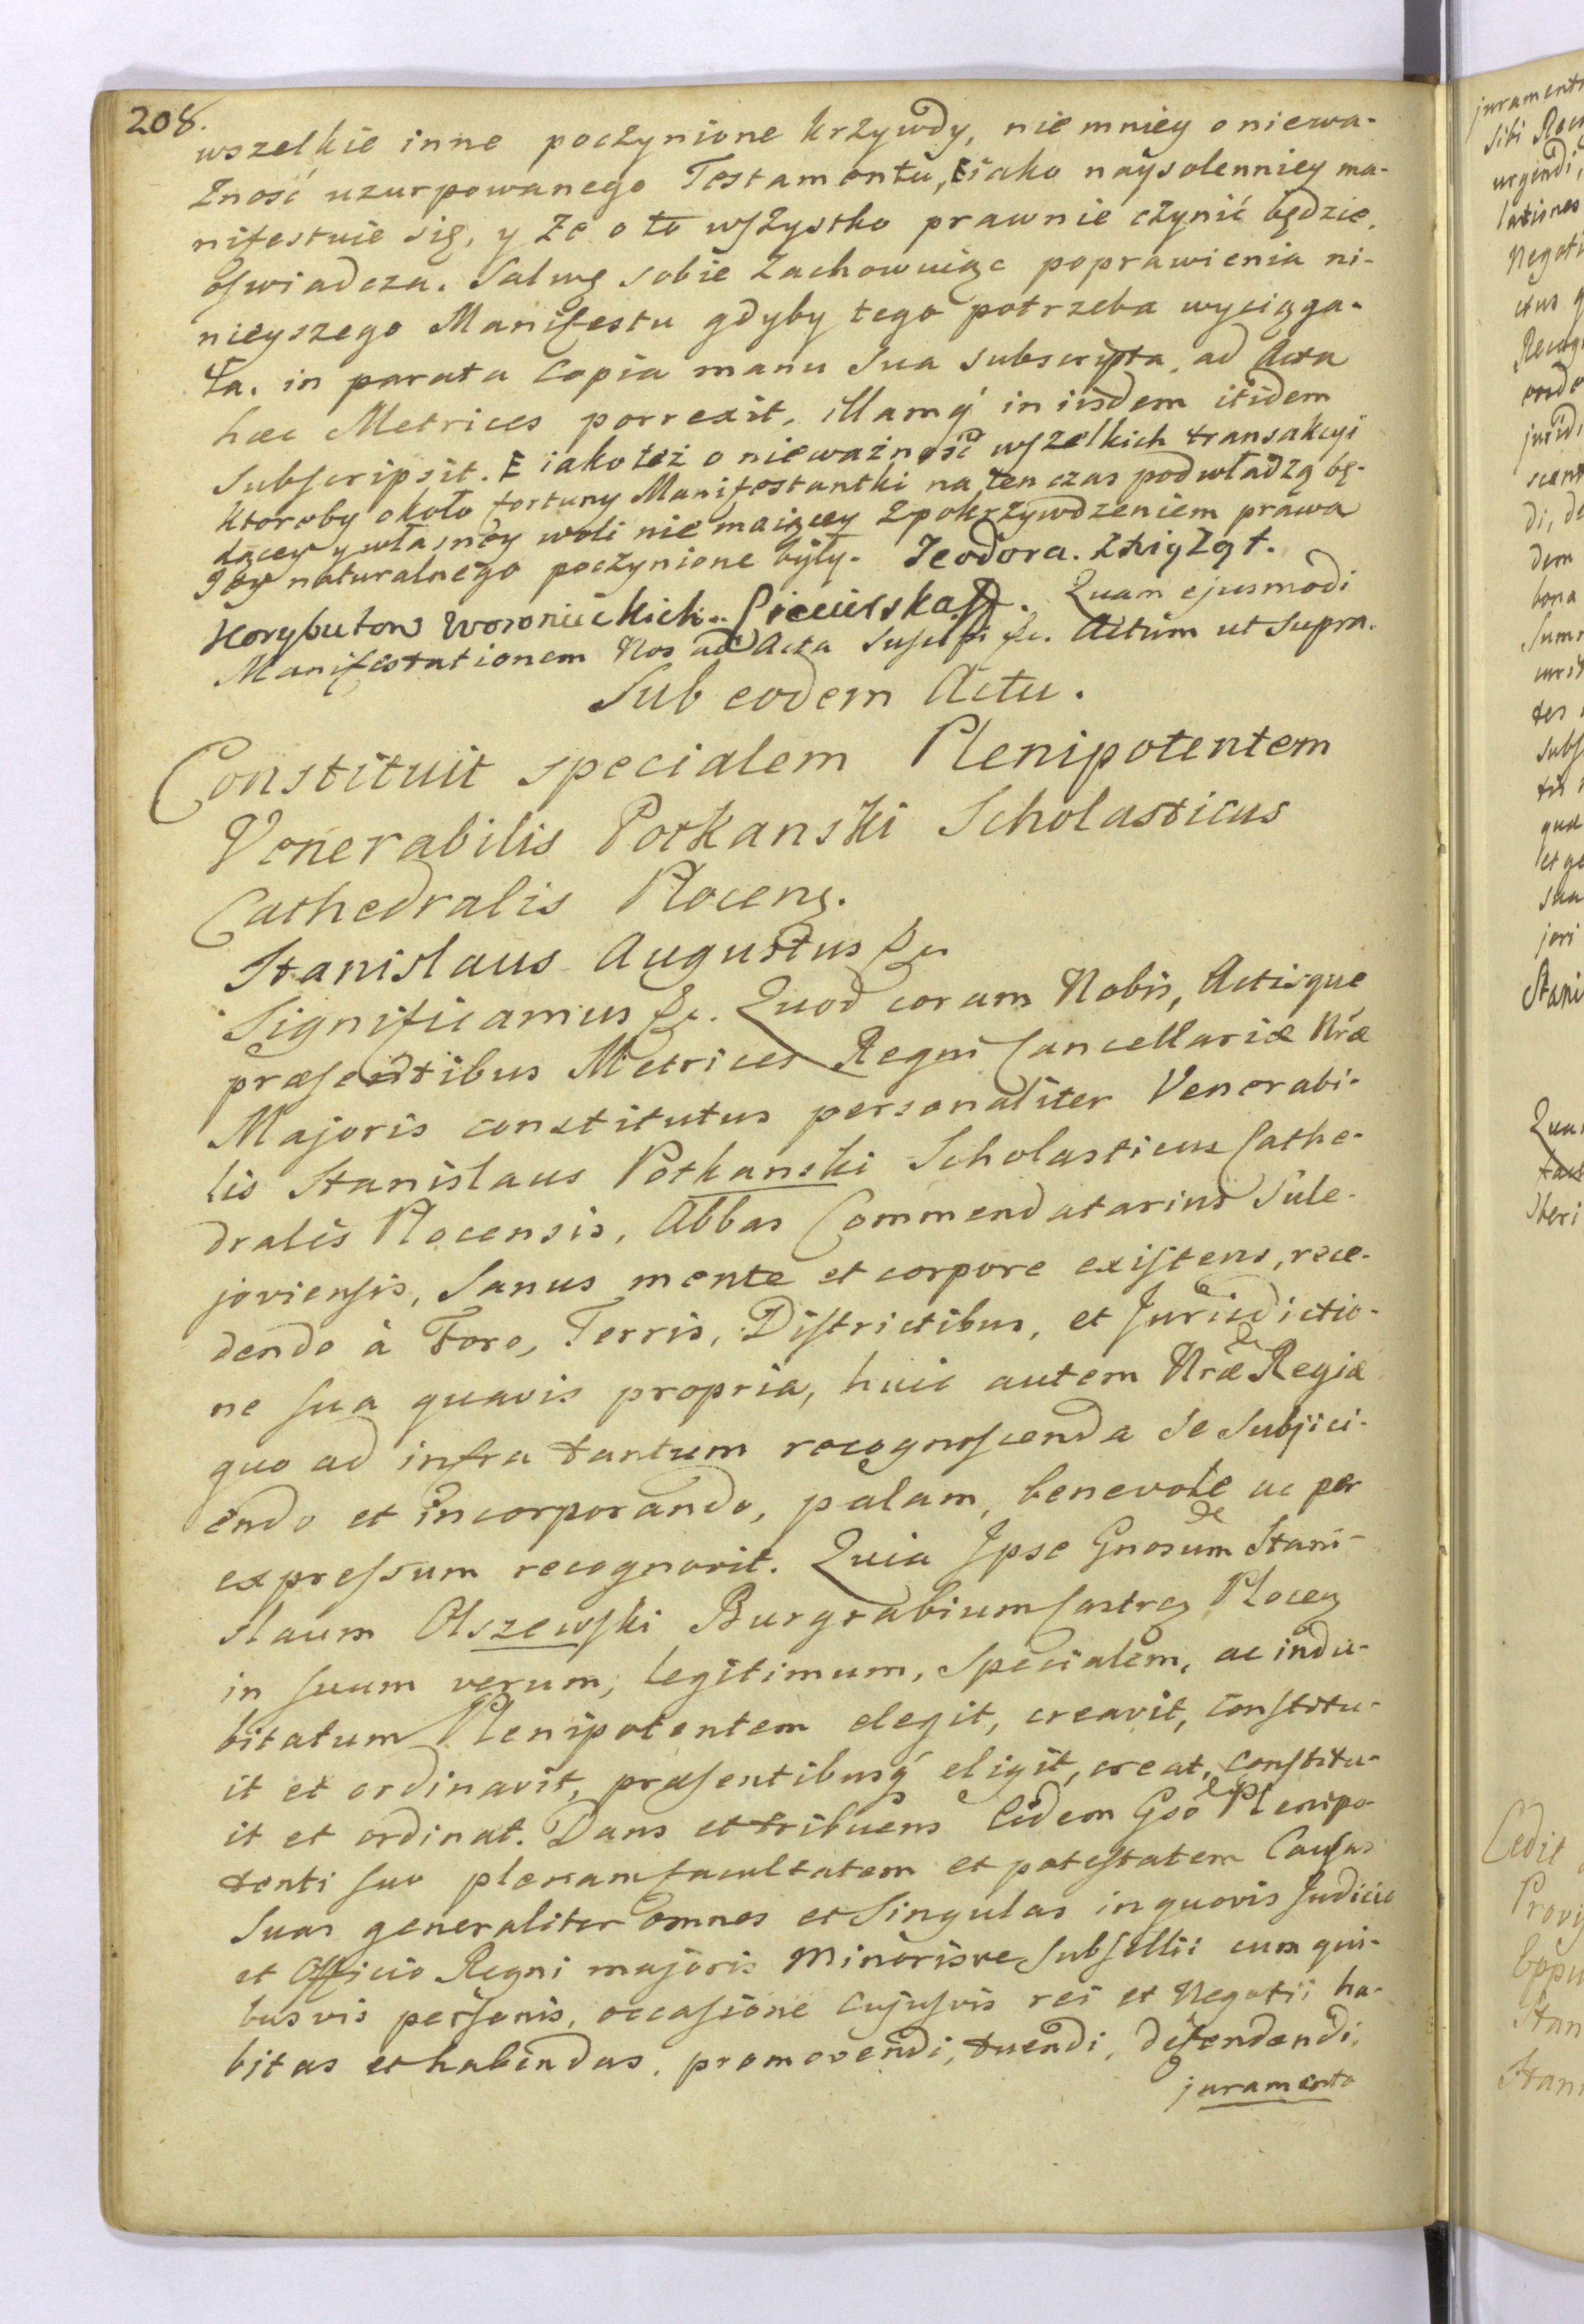 208.
wszelkie inne poczynione krzywdy, nie mniey o niewa-
żność uzurpowanego Testamentu, E iako naysolenniey ma-
nifestuie się, y że o to wszystko prawnie czynić będzie,
oswiadcza. Salwę sobie zachowuiąc poprawienia ni-
nieyszego Manifestu gdyby tego potrzeba wyciąga-
ła. in parata Copia manu sua subscripta ad Acta
hæc Metrices porrexit, illamq́ in iisdem itidem
subscripsit. E iako też o nieważność wszelkich transakcyi
ktoreby około fortuny Manifestantki na ten czas pod władzą bę-
dącey y własney woli nie maiącey z pokrzywdzeniem prawa
Jey naturalnego poczynione były. Teodora. z Xiążąt.
Korybutow Woronieckich. . Quam ejusmodi
Manifestationem Nos ad Acta suscepi &c. Actum ut supra.
Sub eodem Actu.
Constituit specialem Plenipotentem
Venerabilis Potkanski Scholasticus
Cathedralis Plocens.
Stanislaus Augustus &c.
Significamus &c. Quod coram Nobis, Actisque
præsentibus Metrices Regni Cancellariæ Nræ
Majoris constitutus personaliter Venerabi-
lis Stanislaus Potkanski Scholasticus Cathe-
dralis Plocensis, Abbas Commendatarius Sule-
joviensis, Sanus mente et corpore existens, rece-
dendo à Foro, Terris, Districtibus, et Jurisdictio-
ne sua quavis propria, huic autem Nræ &c Regiæ
quo ad infra tantum recognoscenda se subjici-
endo et incorporando, palam, benevole ac per
expressum recognovit. Quia Ipse Gnosum &c Stani-
slaum Olszewski Burgrabium Castrz Plocenz
in suum verum, legitimum, specialem, ac indu-
bitatum Plenipotentem elegit, creavit, constitu-
it et ordinavit, præsentibusq́ eligit, creat, constitu-
it et ordinat. Dans et tribuens Eidem Gso &c Plenipo-
tenti suo plenam facultatem et potestatem Causas
suas generaliter omnes et singulas in quovis Judicio
et Officio Regni majoris minorisve subsellii cum qui-
busvis personis, occasione cujusvis rei et Negotii ha-
bitas et habendas, promovendi, tuendi, defendendi,
juramento